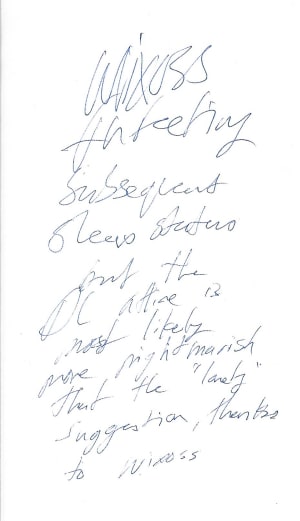 wixoss
infecting
subsequent
 status
but the
 is
most likely
more nightmarish
that the "lonely"
suggestion, thanks
to wixoss